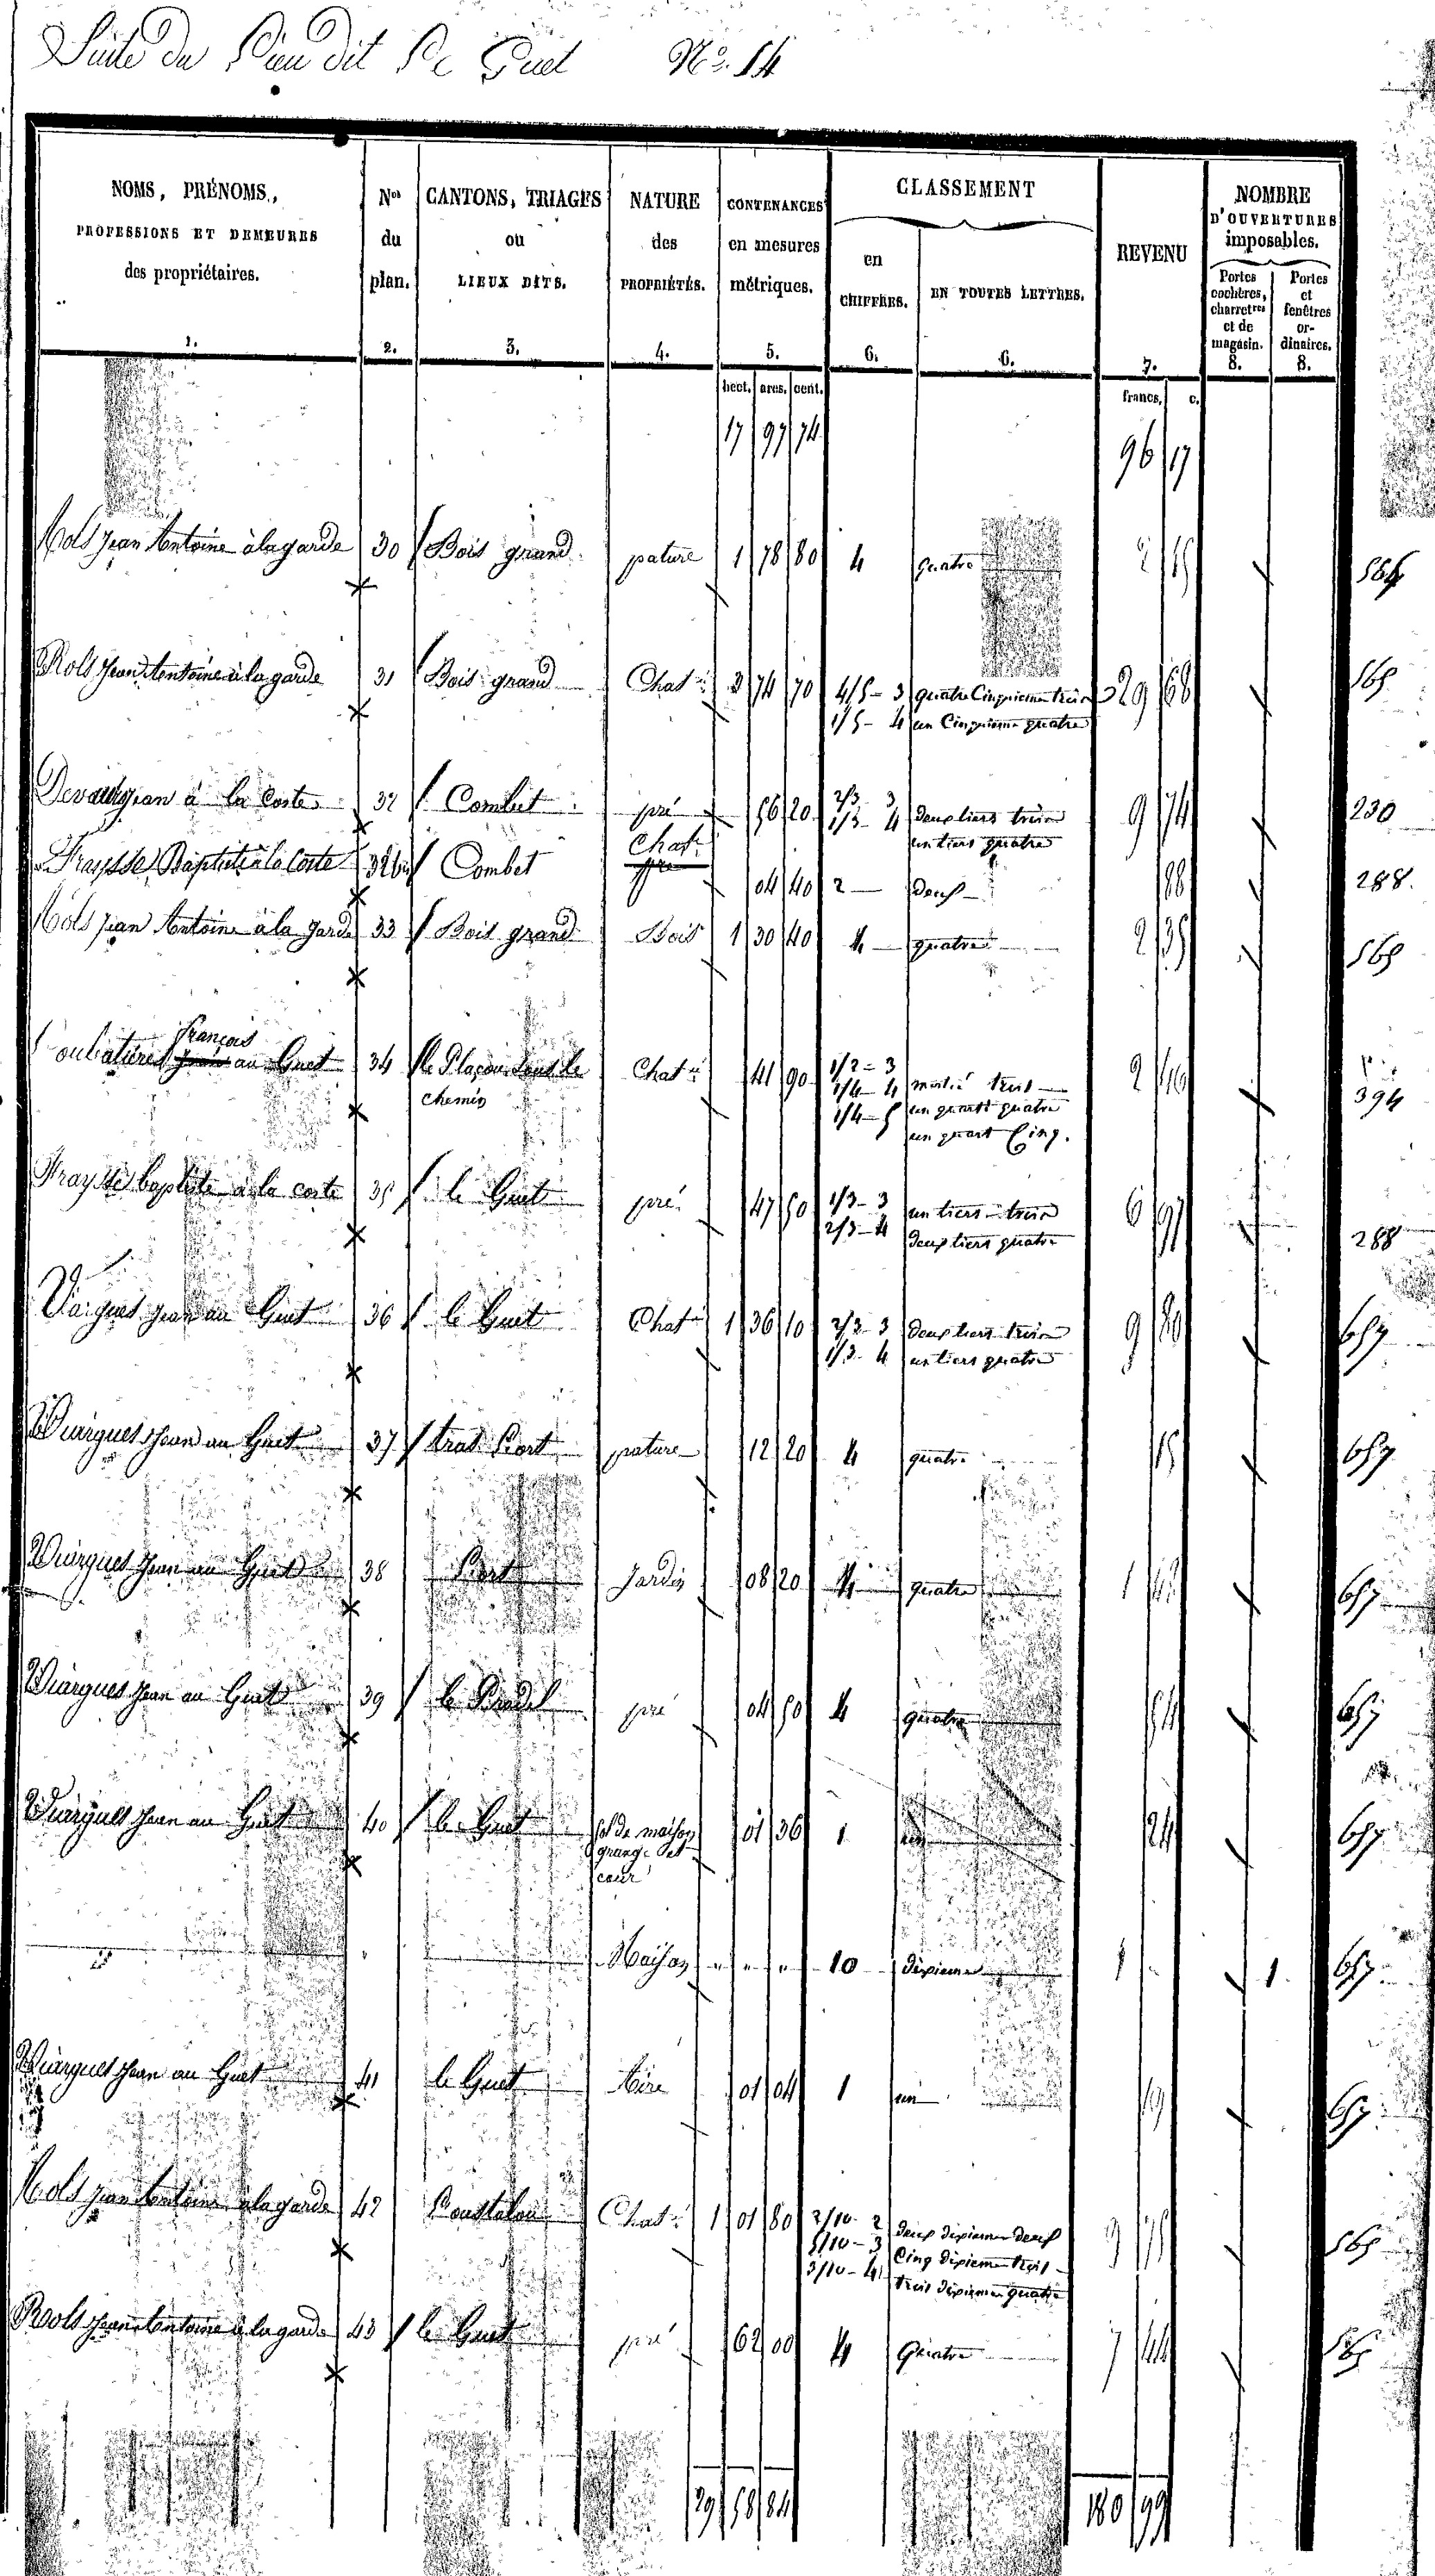 Suite du Lieu dit Le Guet N°. 14
NOMS, PRÉNOMS, PROFESSIONS ET DEMEURES des propriétaires. 1.
Nos du plan. 2.
CANTONS, TRIAGES ou LIEUX DITS. 3.
NATURE des PROPRIÉTÉS. 4.
CONTENANCES en mesures métriques. 5.
CLASSEMENT
en CHIFFRES. 6.
EN TOUTES LETTRES. 6.
REVENU 7.
NOMBRE D'OUVERTURES imposables.
Portes cochères, charretres et de magasin. 8.
Portes et fenêtres or-dinaires. 8.
hect. ares. cent. francs. c.
17 97 74 96 17
Rols Jean Antoine à lagarde 30 Bois grand pature 1 78 80 4 quatre 2 15 565
Rols Jean Antoine à lagarde 31 Bois grand Chat 3 74 70 4/5 - 3 quatre Cinquieme trois 29 68 565
1/5 - 4 un Cinquieme quatre
jean à la Coste 32 Combet pré 56 20 2/3 - 3 deux tiers trois 9 74 230
1/3 - 4 un tiers quatre
Fraysse Baptiste à la Coste 32bis Combet Chat pré 04 40 2 deux 88 288.
Rols Jean Antoine à la garde 33 Bois grand Bois 1 30 40 4 quatre 2 35 565
françois
au Guet 34 le sous le Chat 41 90 1/2 = 3 moitié trois 2 46 394
chemin 1/4 - 4 un quart quatre
1/4 - 5 un quart Cinq.
Fraysse baptiste à la coste 35 le Guet pré 47 50 1/3 - 3 un tiers trois 6 97 288
2/3 - 4 deux tiers quatre
Viargues jean au Guet 36 le Guet Chat 1 36 10 2/3 - 3 deux tiers trois 9 80 657
1/3 - 4 un tiers quatre
Viargues Jean au Guet 37 pature 12 20 4 quatre 15 657
Viargues Jean au Guet 38 Jardin 08 20 4 quatre 1 657
Viargues Jean au Guet 39 le Pradel pré 04 50 4 quatre 54 657
Viargues Jean au Guet 40 le Guet sol de maison 01 36 1 un 24 657
grange et
cour
Maison 10 dixieme 1 1 657
Viargues Jean au Guet 41 le Guet Aire 01 04 1 un 19 657
Rols Jean Antoine à lagarde 42 Chat 1 01 80 2/10 - 2 deux dixieme deux 9 75 565
5/10 - 3 Cinq dixieme trois
3/10 - 4 trois dixieme quatre
Rols Jean Antoine à lagarde 43 le Guet pré 62 00 4 Quatre 7 44 565
29 58 84 180 99